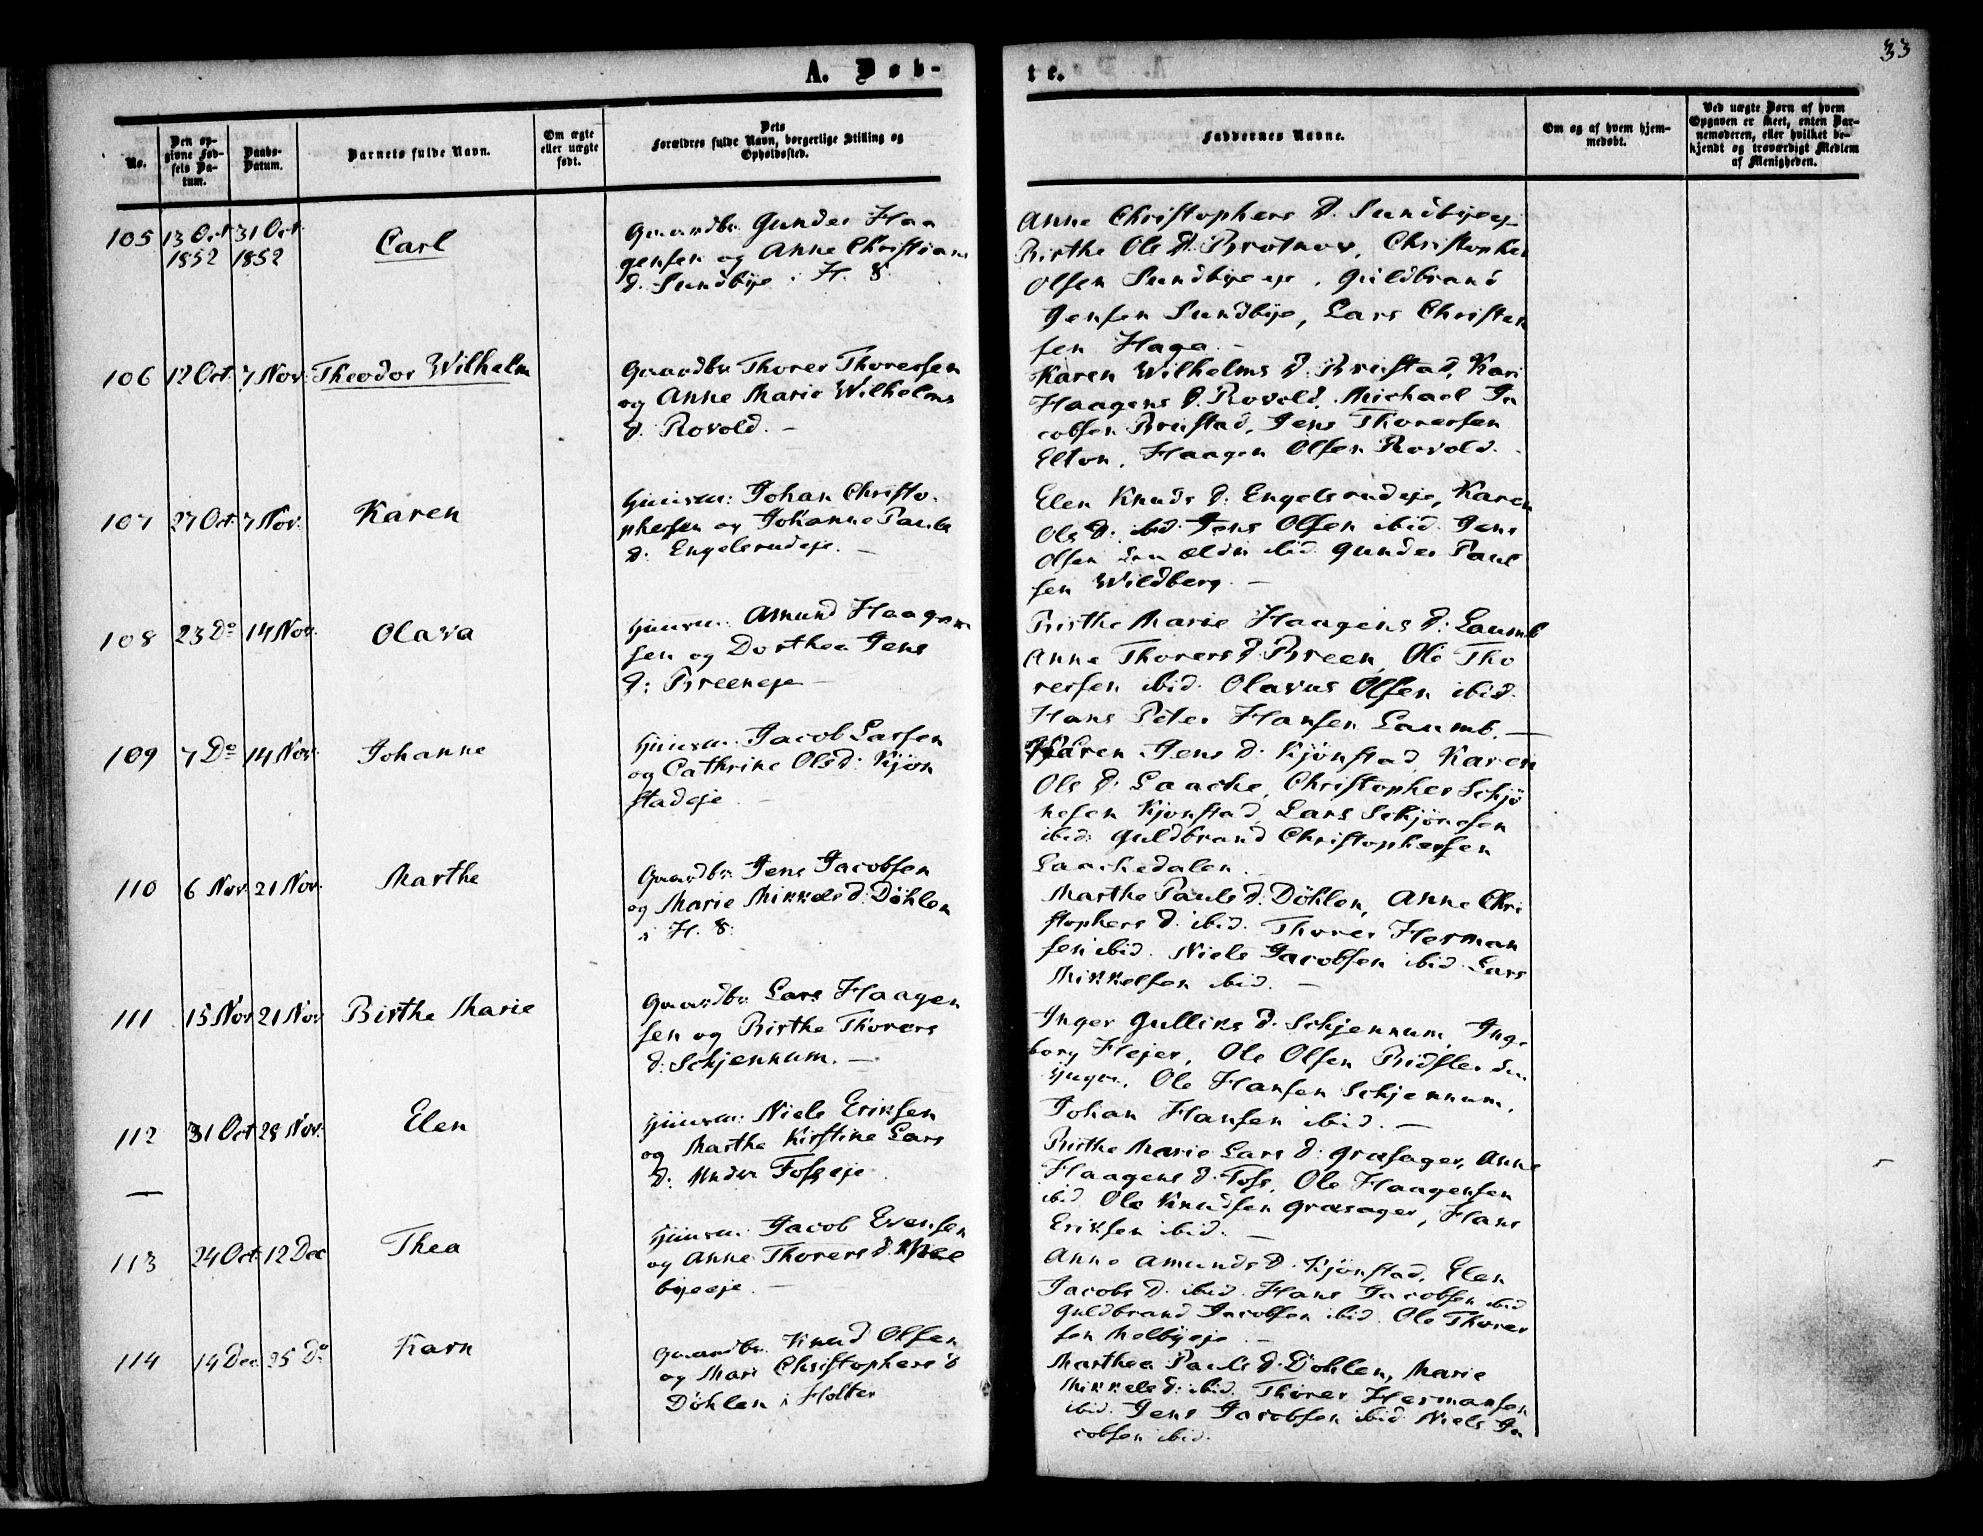 A. Døb-
te.
33
No.
Den op-
givne Fød-
sels Da-
tum.
Daabs-
Datum.
Barnets fulde Navn.
Om ægte
eller uægte
født.
Dets
Forældres fulde Navn, borgerlige Stilling og
Opholdssted.
Faddernes Navne.
Om og af hvem hjem-
medøbt.
Ved uægte Børn af hvem
Opgaven er skeet, enten Bar-
nemoderen, eller hvilket be-
kjendt og troværdigt Medlem
af Menigheden.
105 13 Oct 1852 31 Oct 1852 Carl
Gaardbr. Gunder Haa
gensen og Anne Christians
d. Sundbye i H. S.
Anne Christophers d. Sundbyeeje
Birthe Ole d. Brotnov, Christopher
Olsen Sundbyeeje, Guldbrand
Jensen Sundbye, Lars Christen
sen Haga.
106 12 Oct. 7 Nov. Theodor Wilhelm
Gaardbr Thorer Thorersen
og Anne Marie Wilhelms
d. Rovold. —
Karen Wilhelms d. Brustad, Kari
Haagens d. Rovold, Michael Ja
cobsen Brustad, Jens Thorersen
Elton, Haagen Olsen Rovold.
107 27 Oct. 7 Nov. Karen
Huusm: Johan Christo-
phersen og Johanne Pauls
d: Engelsrudeje. —
Elen Knuds d: Engelsrudeje, Karen
Ols d. ibid. Jens Olsen ibid. Jens
Olsen den ældre ibid. Gunder Paul
sen Wildberg. —
108 23 Do 14 Nov. Olava
Huusm: Amund Haagen
sen og Dorthea Jens
d: Breeneje —
Birthe Marie Haagens d: Laumb
Anne Thorers d Breen, Ole Tho
rersen ibid. Olavus Olsen ibid.
Hans Peter Hansen Laumb. —
109 7 Do 14 Nov. Johanne
Huusm: Jacob Larsen
og Cathrine Ols d: Kjøn
stadeje —
Karen Jens d. Kjønstad, Karen
Ols d. Laache, Christopher Schjø
nesen Kjønstad, Lars Schjønesen
ibid: Guldbrand Christophersen
Laachedalen.
110 6 Nov. 21 Nov. Marthe
Gaardbr Jens Jacobsen
og Marie Mikkels d: Døhlen
i H. S:
Marthe Pauls d. Døhlen, Anne Chri
stophers d. ibid. Thorer Herman
sen ibid. Niels Jacobsen ibid. Lars
Mikkelsen ibid. —
111 15 Nov 21 Nov Birthe Marie
Gaardbr Lars Haagen
sen og Birthe Thorers
d: Schjennum. —
Inger Gulliks d. Schjennum, Inge
borg Hejer, Ole Olsen Bidsler den
yngre, Ole Hansen Schjennum,
Johan Hansen ibid. —
112 31 Oct 28 Nov. Elen
Huusm: Niels Eriksen
og Marthe Kirstine Lars
d: Under Fosseje.
Birthe Marie Lars d: Græsager, Anne
Haagens d. Foss, Ole Haagensen
ibid. Ole Knudsen Græsager, Hans
Eriksen ibid. —
113 24 Oct. 12 Dec Thea
Huusm: Jacob Evensen
og Anne Thorers d. Mel
byeeje. —
Anne Amunds d. Kjønstad, Elen
Jacobs d. ibid. Hans Jacobsen ibid.
Guldbrand Jacobsen ibid. Ole Thorer
sen Melbyeeje. —
114 14 Dec 25 Do Karn
Gaardbr. Knud Olsen
og Mari Christophers d
Døhlen i Holter
Marthea Pauls d. Døhlen, Marie
Mikkels d: ibid. Thorer Hermansen
ibid. Jens Jacobsen ibid. Niels Ja
cobsen ibid.